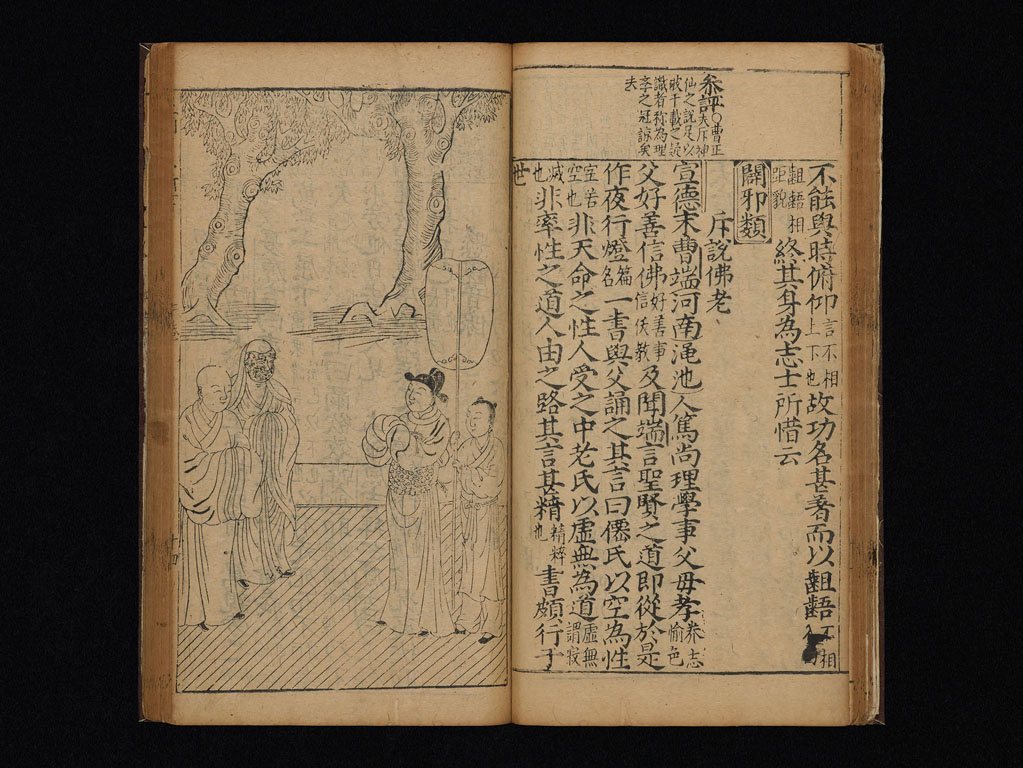 叅評○曹正
夫斥神
仙之說足以
破千載之惑
識者稱為理
學之冠諒矣
夫
不能與時俯仰言不相上下也故功名甚著而以齟齬不相
齟齬相距貌終其身為志士所惜云
闢邪類
斥說佛老
宣德末曹端河南澠池人篤尚理學事父母孝養志愉色
父好善信佛好善事信佚教及聞端言聖賢之道即從於是
作夜行燈篇名一書與父誦之其言曰僊氏以空為性
苦空也非天命之性人受之中老氏以虛無為道虛無謂寂
滅也非率性之道人由之路其言甚精精粹也書頗行于
世